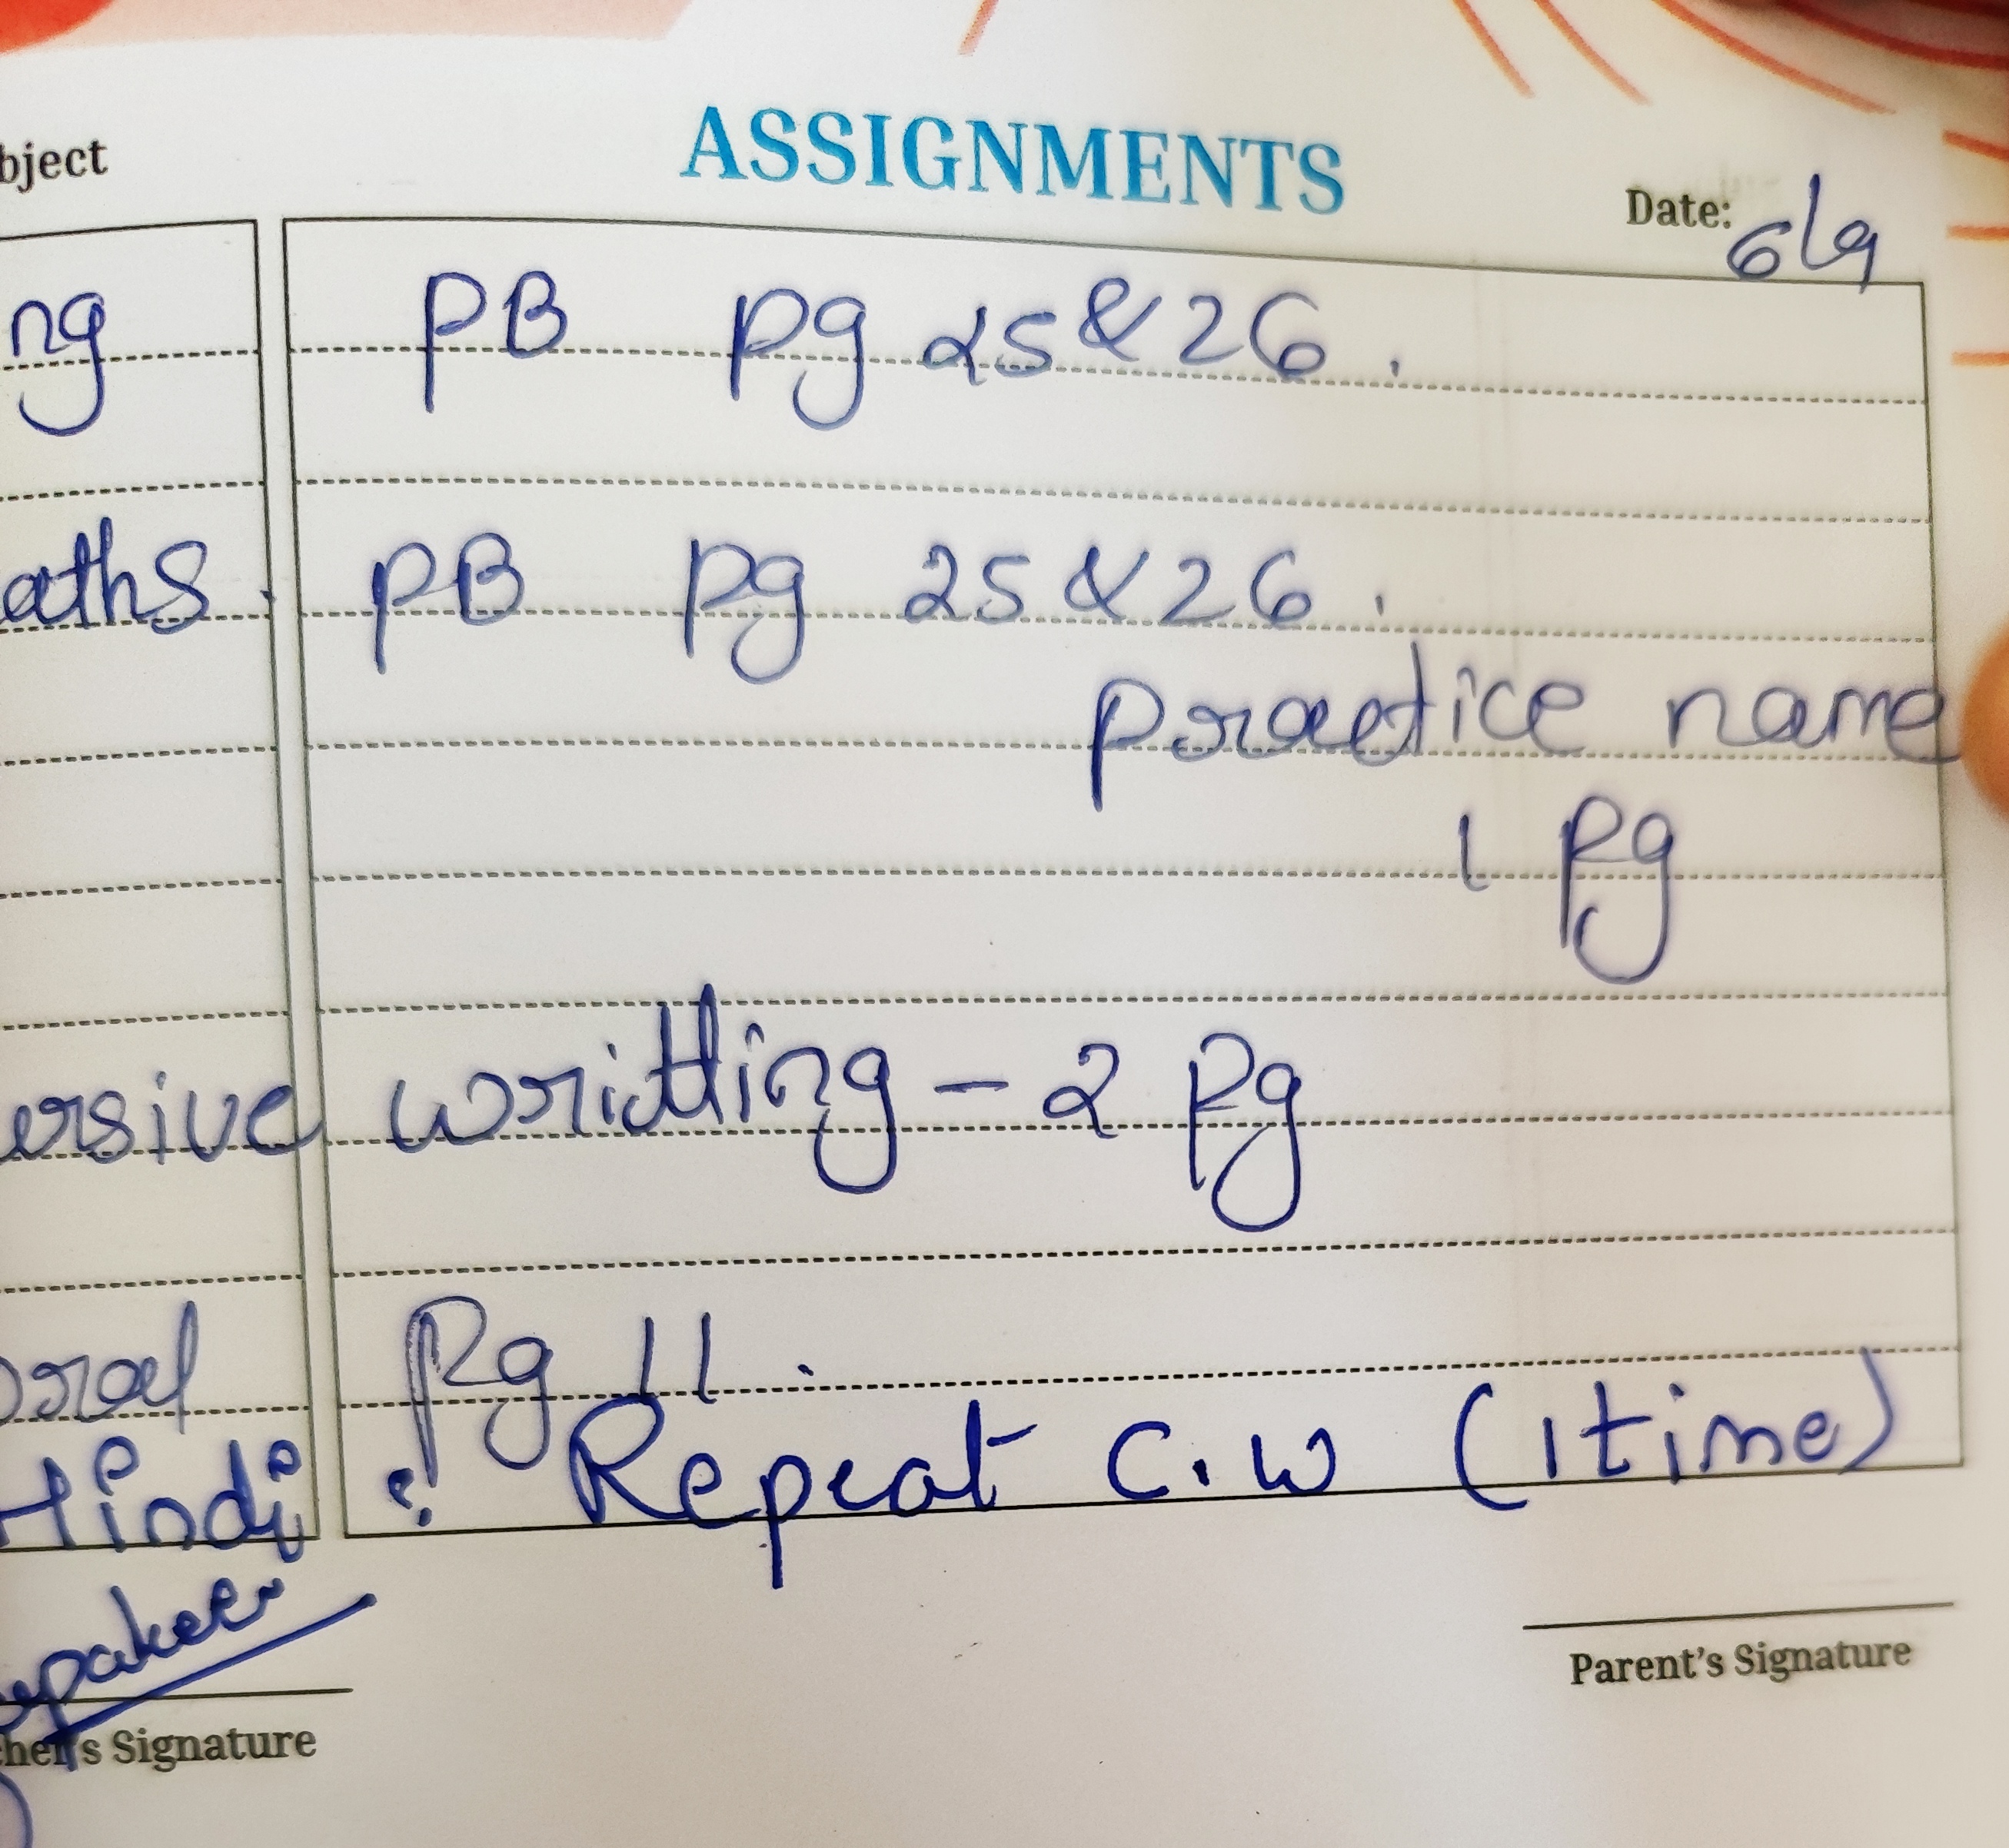 bject
ASSIGNMENTS
Date: 6/9
ng PB pg 25 & 26.
aths. PB pg 25 & 26.
practice name
1 pg
ursive writting - 2 pg
oral Pg 11.
Hindi : Repeat C.W (1 time)
Parent's Signature
cher's Signature